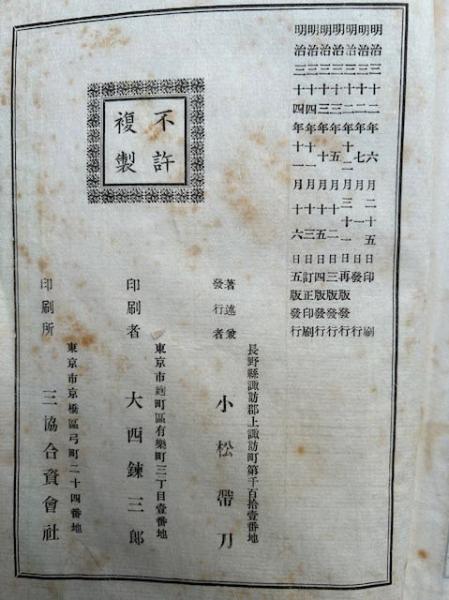 明治三十二年六月二十五日印刷
明治三十二年七月一日發行
明治三十二年十二月三十一日再版發行
明治三十三年五月十二日三版發行
明治三十三年十月十五日四版發行
明治三十四年十一月十三日訂正印刷
明治三十四年十一月十六日五版發行
不許
複製
長野縣諏訪郡上諏訪町第千百拾壹番地
著述兼
發行者
小松帶刀
東京市麹町區有樂町三丁目壹番地
印刷者
大西鍊三郎
東京市京橋區弓町二十四番地
印刷所
三協合資會社